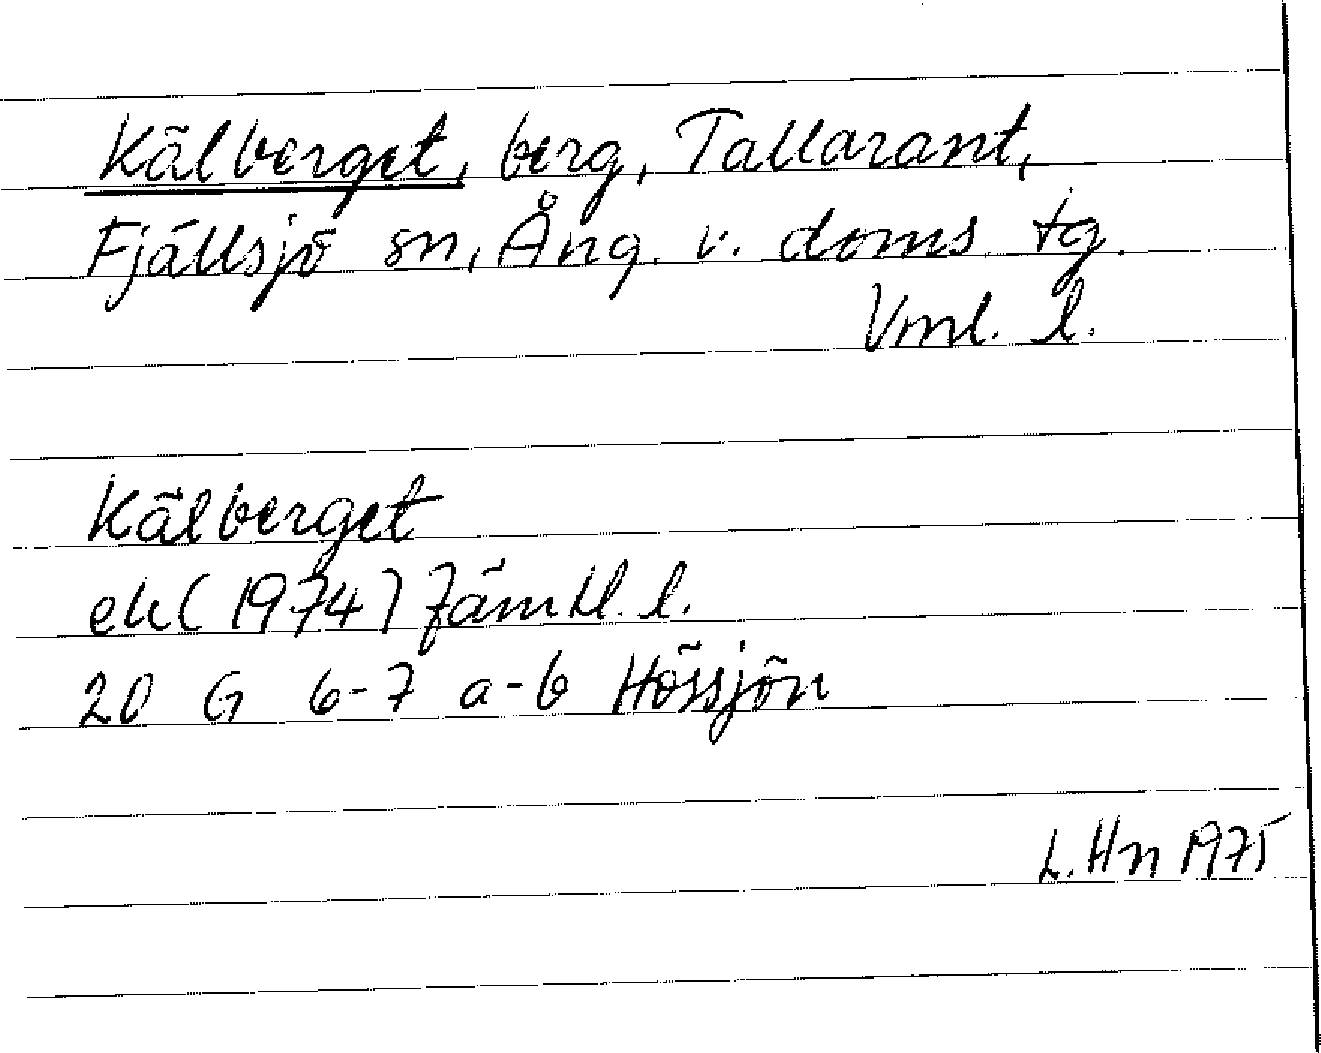 Kälberget, berg, Tallarant,
Fjällsjö sn, Ång. v. doms. tg.
Vml. l.
Kälberget
ek (1974) Jämtl. l.
20 G 6-7 a-b Hössjön
L. Hn 1975